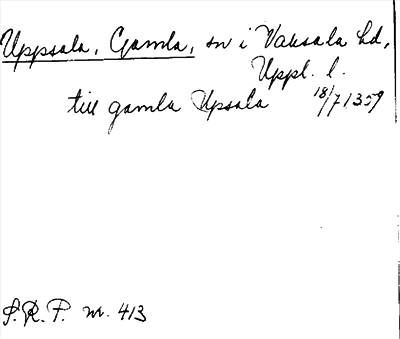 Uppsala, Gamla, sn i Vaksala hd,
Uppl. l.
till gamla Upsala 18/7 1359
S.R.P. nr. 413